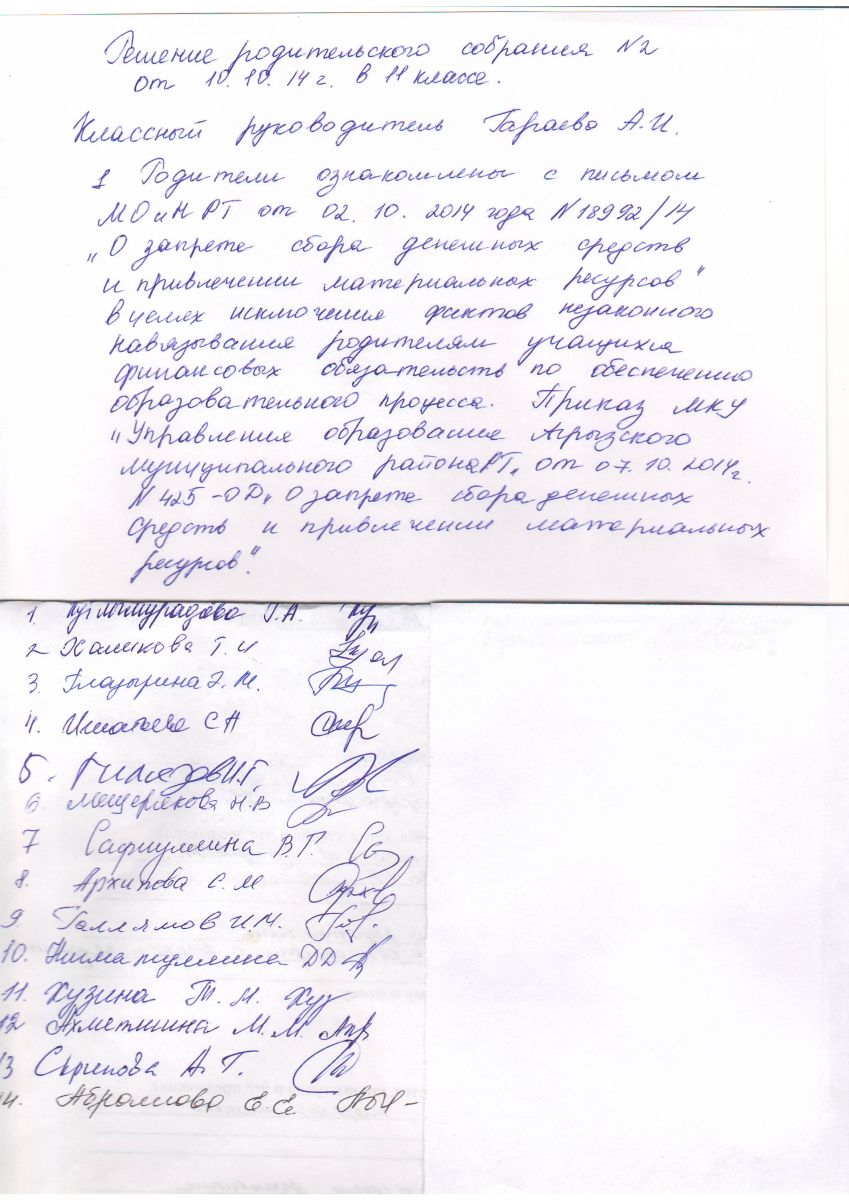 Решение родительского собрания N2
от 10.10.14 г. в 11 классе.
Классный руководитель Гараева А.И.
1 Родители ознакомлены с письмом
МО и Н РТ от 02.10.2014 года N18992/14
„О запрете сбора денежных средств
и привлечении материальных ресурсов"
в целях исключения фактов незаконного
навязывания родителям учащихся
финансовых обязательств по обеспечению
образовательного процесса. Приказ МКУ
„Управления образования Агрызского
муниципального района РТ„ от 07.10.2014г.
N425-ОД„ О запрете сбора денежных
средств и привлечении материальных
ресурсов".
1. Г.А.
2 Халикова Т.И
3. Глазырина Э.М.
4. С А
5. Гилязов И.Г.
6. Мещерякова Н.В
7 Сафиуллина В.Г.
8. Архипова С.М
9. Галлямов И.М.
10. Нигматуллина Д Д
11. Хузина Т.М.
12 Ахметшина М.М.
13 А.Т.
14. Абрамова Е.Е.